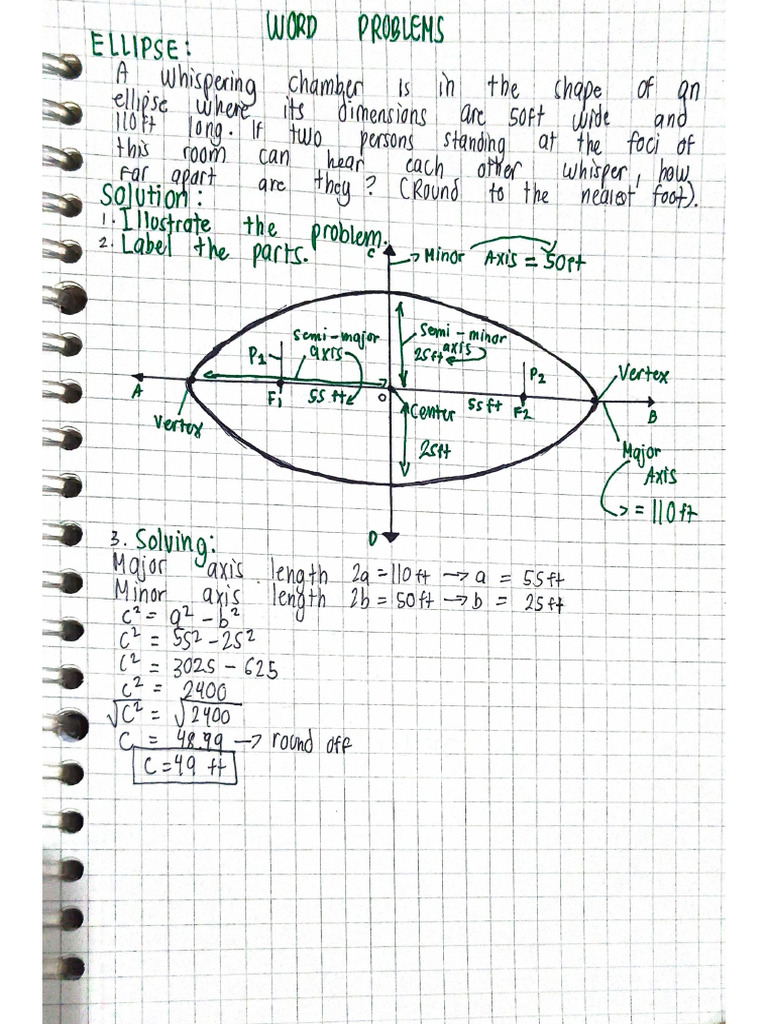 WORD PROBLEMS
ELLIPSE:
A whispering chamber is in the shape of an
ellipse where its dimensions are 50ft wide and
110ft long. If two persons standing at the foci of
this room can hear each other whisper, how
far apart are they? (Round to the nearest foot).
Solution:
1. Illustrate the problem.
2. Label the parts.
C
→ Minor Axis = 50ft
Semi-major
axis
Semi-minor
axis
25ft
P1
P2
Vertex
A
F1
55 ft
O
Center
55ft
F2
B
Vertex
25ft
Major
Axis
= 110ft
D
3. Solving:
Major axis length 2a = 110ft → a = 55ft
Minor axis length 2b = 50ft → b = 25ft
c² = a² - b²
c² = 55² - 25²
c² = 3025 - 625
c² = 2400
√c² = √2400
c = 48.99 → round off
c = 49 ft